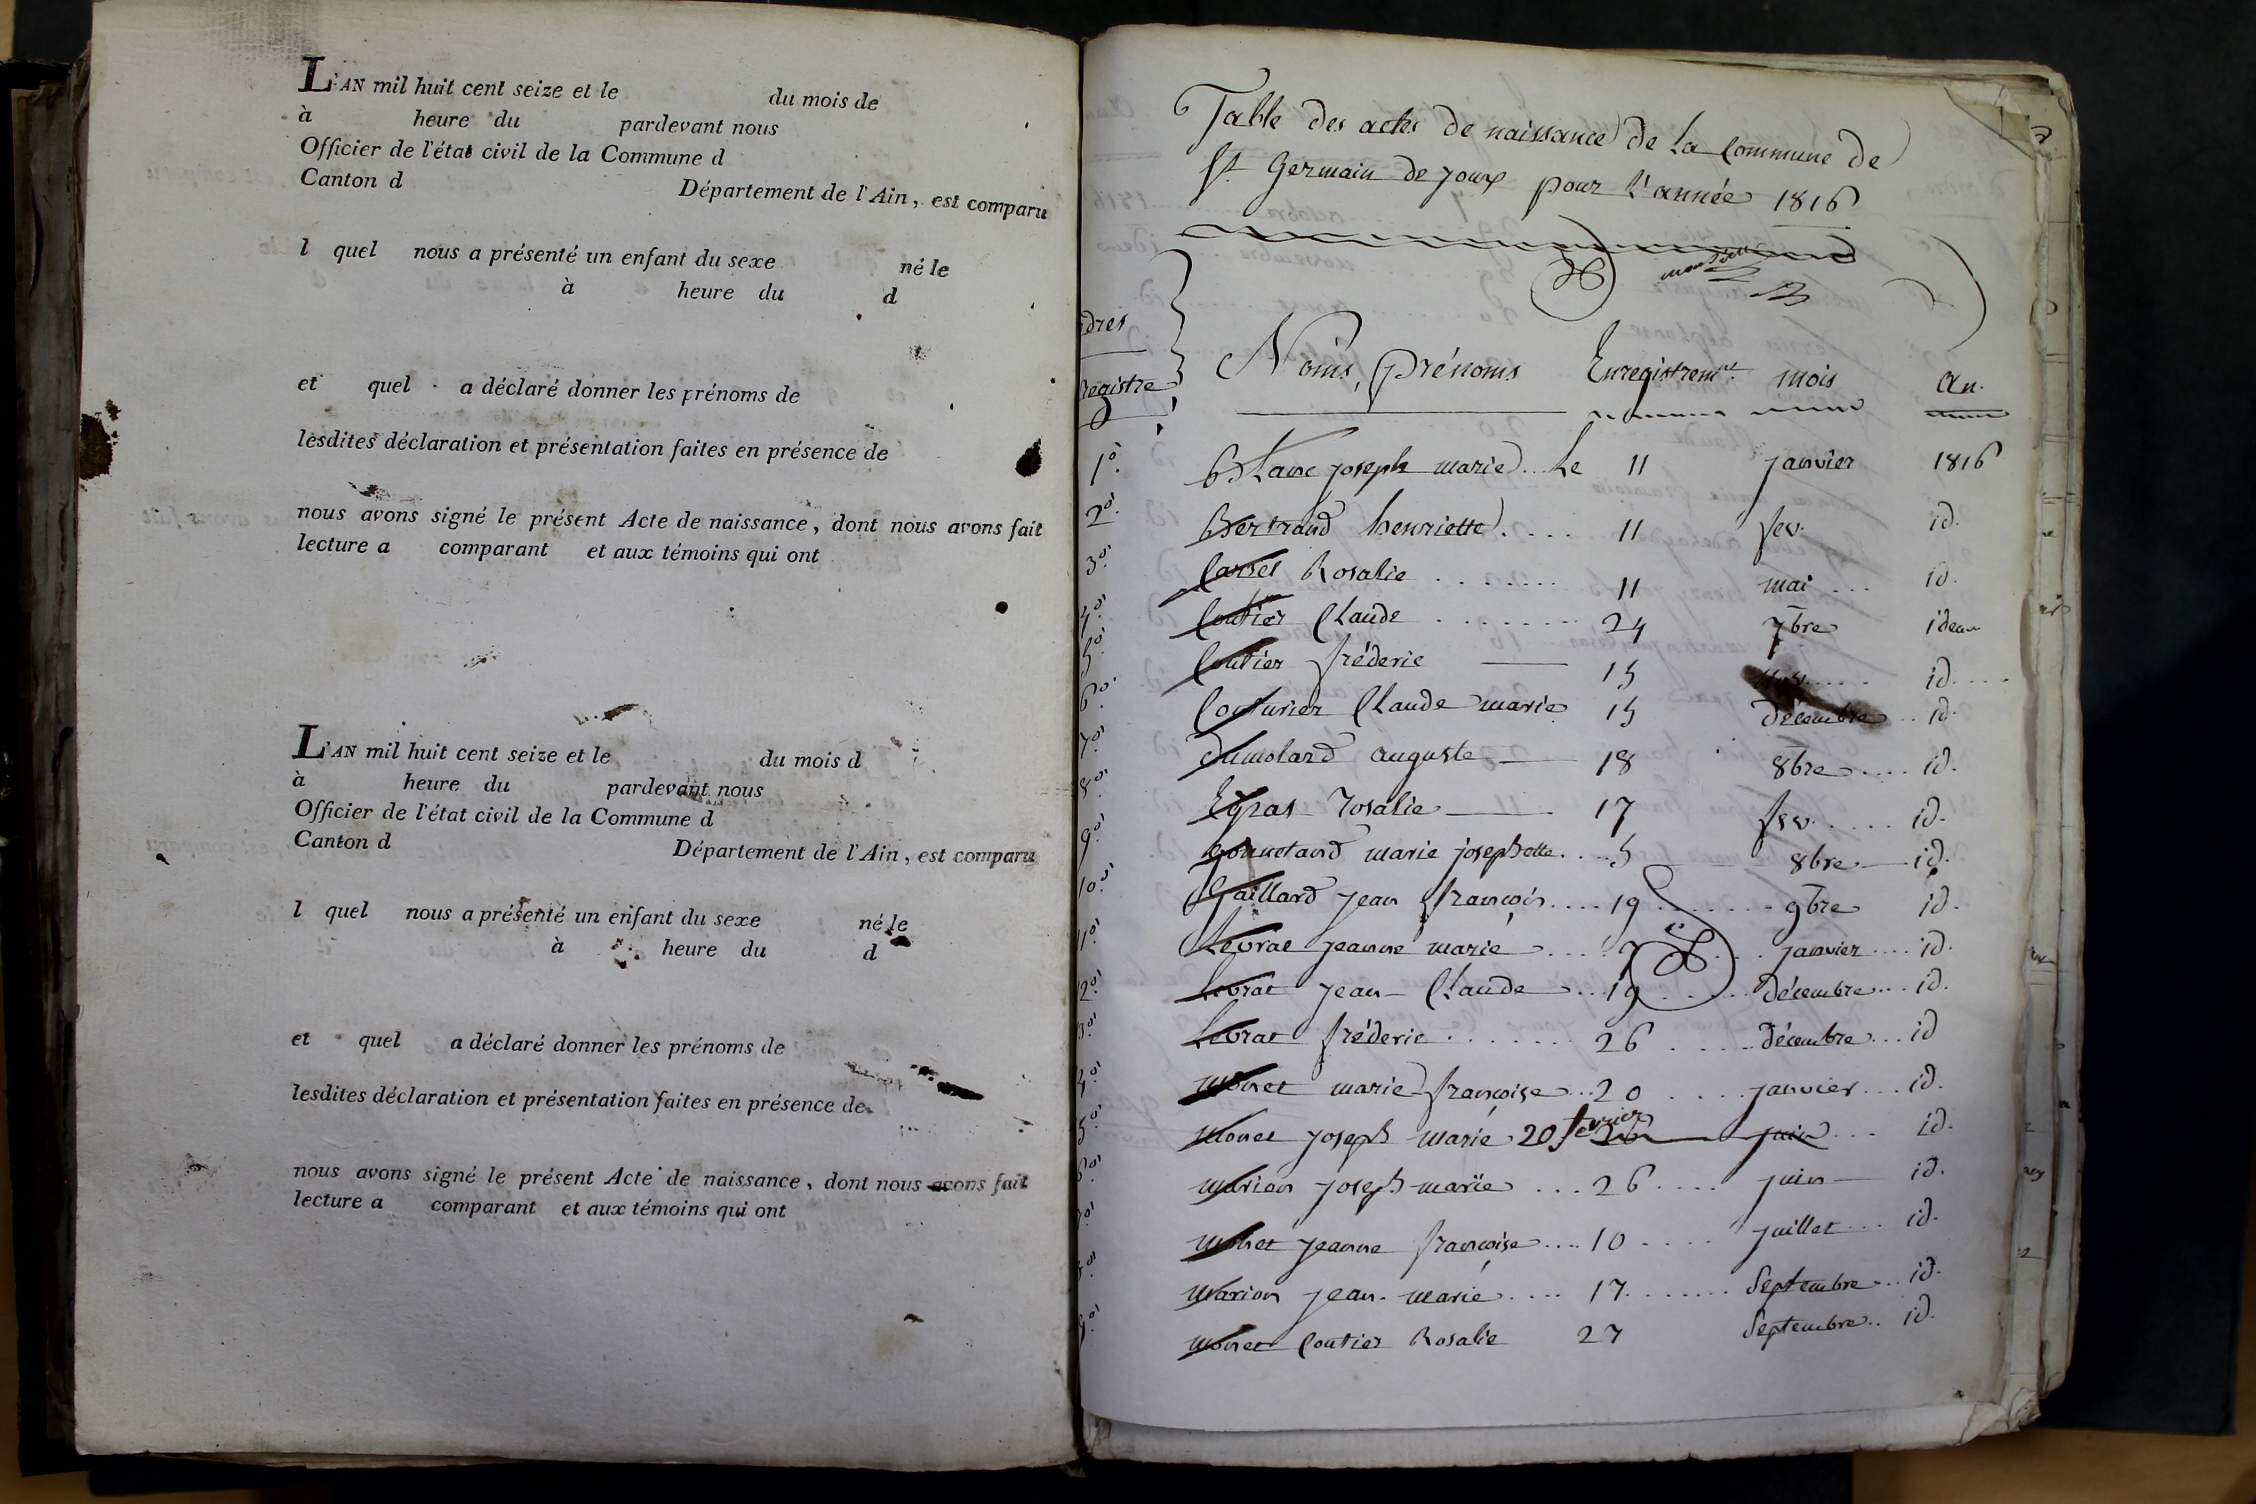 L'AN mil huit cent seize et le du mois de
à heure du pardevant nous
Officier de l'état civil de la Commune d
Canton d Département de l'Ain, est comparu
l quel nous a présenté un enfant du sexe né le
à heure du d
et quel a déclaré donner les prénoms de
lesdites déclaration et présentation faites en présence de
nous avons signé le présent Acte de naissance, dont nous avons fait
lecture a comparant et aux témoins qui ont
L'AN mil huit cent seize et le du mois d
à heure du pardevant nous
Officier de l'état civil de la Commune d
Canton d Département de l'Ain, est comparu
l quel nous a présenté un enfant du sexe né le
à heure du d
et quel a déclaré donner les prénoms de
lesdites déclaration et présentation faites en présence de
nous avons signé le présent Acte de naissance, dont nous avons fait
lecture a comparant et aux témoins qui ont
Table des actes de naissance de La Commune de
St Germain de joux pour l'année 1816
dres
Registre Noms, prénoms Enregistremt. mois an.
1o. Blanc joseph marie... Le 11 janvier 1816
2o. Bertrand henriette.... 11 fev. id.
3o. Carrel Rosalie ....... 11 mai ... id.
4o. Coutier Claude ........ 24 7bre idem
5o. Coutier fréderic — 15 nov..... id....
6o. Couturier Claude marie 15 décembre .. id.
7o. Dumolard auguste — 18 8bre .... id.
8o. Egras rosalie — 17 fev..... id.
9o. Gonnetand marie josephette.... 5 — 8bre — id.
10o. Gaillard jean françois.... 19 ....... 9bre id.
11o. Levrat jeanne marie ..... 7 .... janvier .... id.
12o. Levrat jean-Claude ... 19 ..... décembre... id.
3o. Levrat fréderic ....... 26 ..... décembre... id
4o. monet marie françoise.. 20 ..... janvier... id.
5o. monet joseph marie 20 fevrier juin ... id.
6o. marion joseph marie ... 26 .... juin — id.
7o. monet jeanne françoise.... 10 .... juillet ... id.
8o. marion jean-marie.... 17....... Septembre... id.
9o. monet Coutier Rosalie 27 Septembre.. id.